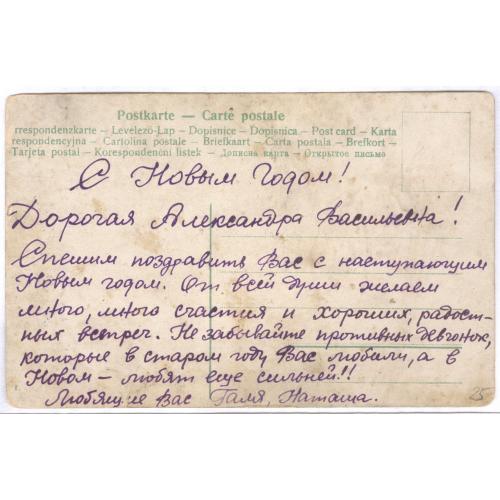 Postkarte — Carte postale
rrespondenzkarte – Levelező-Lap – Dopisnice – Dopisnica – Post card – Karta
respondencyjna – Cartolina postale – Briefkaart – Carta postala – Brefkort –
Tarjeta postal – Korespondenční listek – Дописна карта – Открытое письмо
С Новым Годом!
Дорогая Александра Васильевна!
Спешим поздравить Вас с наступающим
Новым годом. От всей души желаем
много, много счастия и хороших, радост-
ных встреч. Не забывайте противных девчонок,
которые в старом году Вас любили, а в
Новом – любят еще сильней!!
Любящие Вас Галя, Наташа.
25